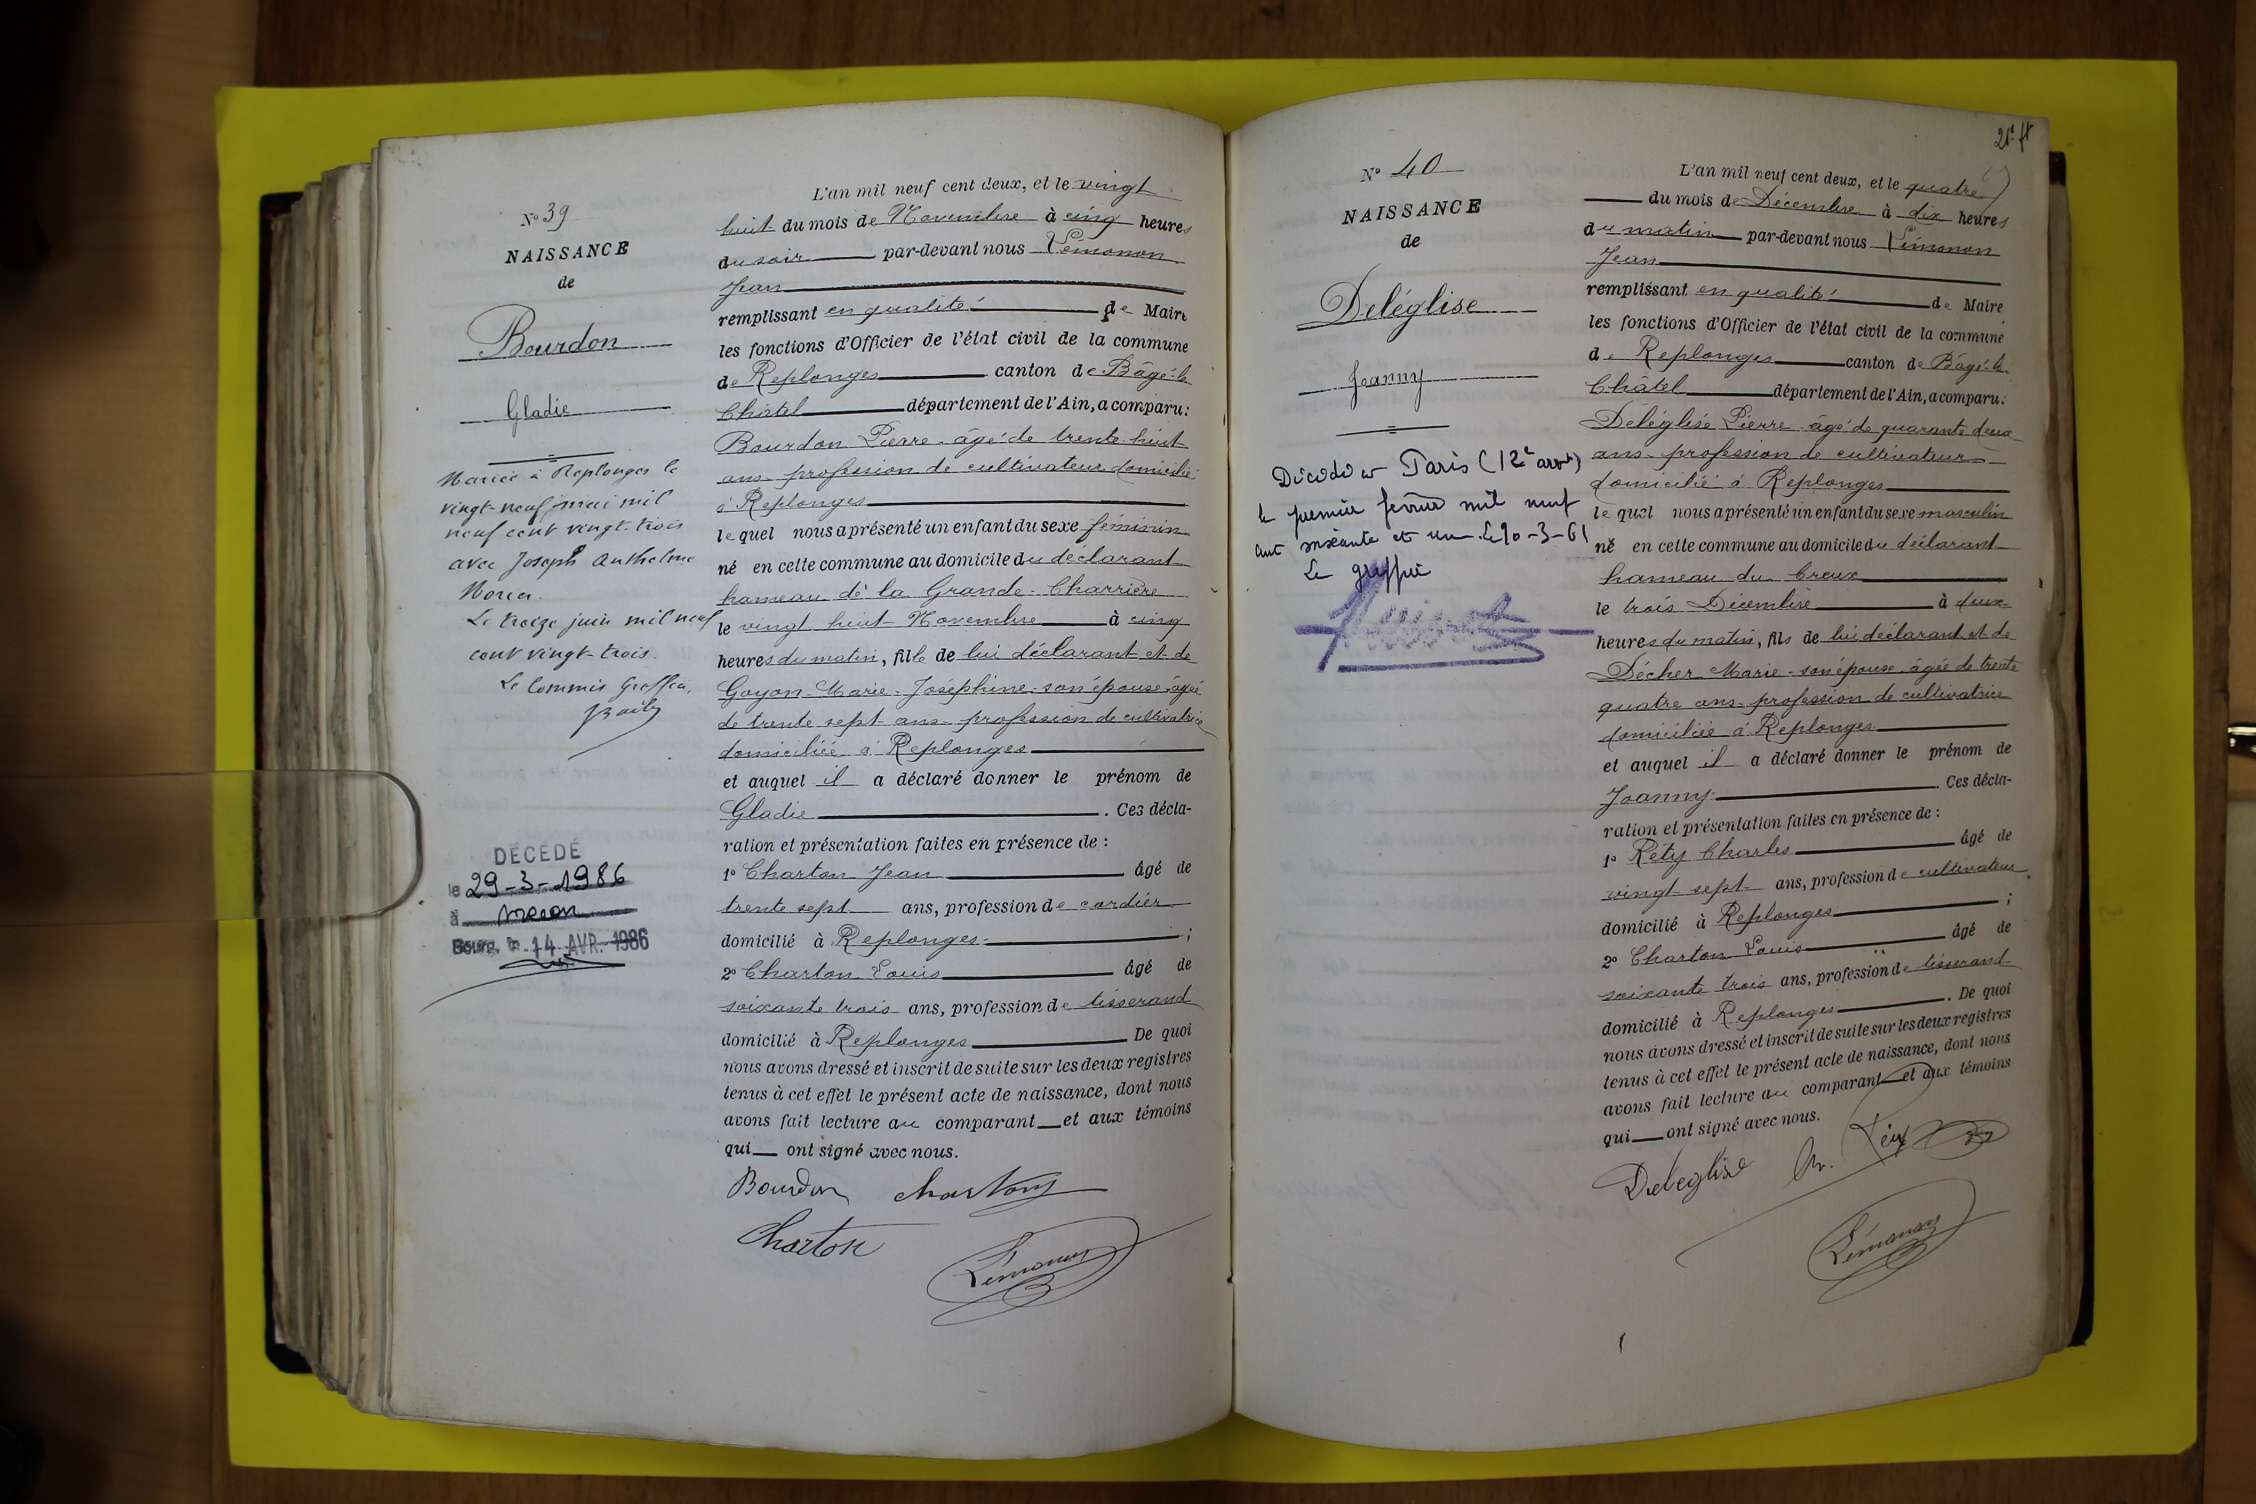 N° 39
NAISSANCE
de
Bourdon
Gladie
Mariée à Replonges le
vingt-neuf mai mil
neuf cent vingt-trois
avec Joseph Anthelme
Le treize juin mil neuf
cent vingt-trois.
Le Commis Greffier,
DÉCÉDÉ
le 29-3-1986
à Macon
Bourg, le 14 AVR. 1986
L'an mil neuf cent deux, et le vingt
huit du mois de Novembre à cinq heures
du soir par-devant nous Lémonon
Jean
remplissant en qualité de Maire
les fonctions d'Officier de l'état civil de la commune
de Replonges canton de Bâgé-le
Châtel département de l'Ain, a comparu:
Bourdon Pierre âgé de trente huit
ans profession de cultivateur domicilié
à Replonges
lequel nous a présenté un enfant du sexe féminin
né en cette commune au domicile du déclarant
hameau de la Grande Charrière
le vingt huit Novembre à cinq
heures du matin, fille de lui déclarant et de
Goyon Marie Joséphine son épouse âgée
de trente sept ans profession de cultivatrice
domiciliée à Replonges
et auquel il a déclaré donner le prénom de
Gladie. Ces décla-
ration et présentation faites en présence de :
1° Charton Jean âgé de
trente sept ans, profession de cordier
domicilié à Replonges ;
2° Charton Louis âgé de
soixante trois ans, profession de tisserand
domicilié à Replonges De quoi
nous avons dressé et inscrit de suite sur les deux registres
tenus à cet effet le présent acte de naissance, dont nous
avons fait lecture au comparant et aux témoins
qui ont signé avec nous.
Bourdon Charton
Charton
Lémonon
N° 40
NAISSANCE
de
Deléglise
Joanny
Décédé à Paris (12e arrt)
le premier février mil neuf
cent soixante et un. Le 10-3-61
Le greffier
L'an mil neuf cent deux, et le quatre
du mois de Décembre à dix heures
du matin par-devant nous Lémonon
Jean
remplissant en qualité de Maire
les fonctions d'Officier de l'état civil de la commune
de Replonges canton de Bâgé-le
Châtel département de l'Ain, a comparu:
Deléglise Pierre âgé de quarante deux
ans profession de cultivateur
domicilié à Replonges
lequel nous a présenté un enfant du sexe masculin
né en cette commune au domicile du déclarant
hameau du Creux
le trois Décembre à deux
heures du matin, fils de lui déclarant et de
Décher Marie son épouse âgée de trente
quatre ans profession de cultivatrice
domiciliée à Replonges
et auquel il a déclaré donner le prénom de
Joanny. Ces décla-
ration et présentation faites en présence de :
1° Réty Charles âgé de
vingt sept ans, profession de cultivateur
domicilié à Replonges ;
2° Charton Louis âgé de
soixante trois ans, profession de tisserand
domicilié à Replonges. De quoi
nous avons dressé et inscrit de suite sur les deux registres
tenus à cet effet le présent acte de naissance, dont nous
avons fait lecture au comparant et aux témoins
qui ont signé avec nous.
Deleglise Ch. Réty
Lémonon